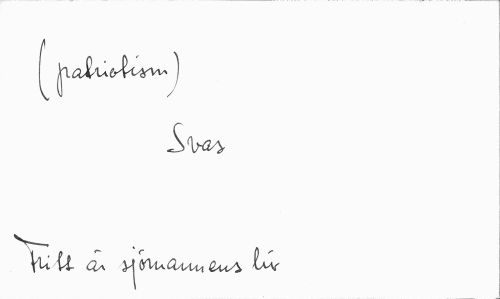 (patriotism)
Svas
Fritt är sjömannens liv